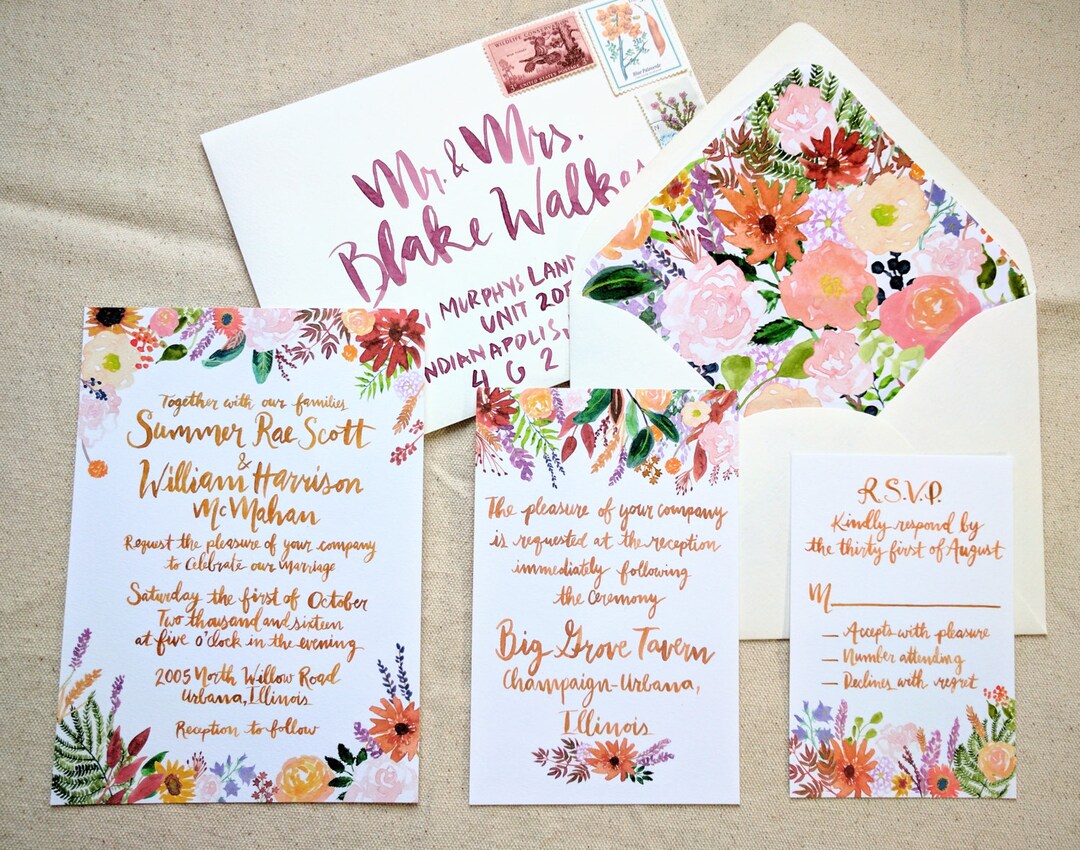 WILDLIFE CONSERVATION
UNITED STATES POSTAGE
Blue Paloverde
Mr. & Mrs.
Blake
MURPHYS
UNIT
4 6 2
Together with our families
Summer Rae Scott
&
William Harrison
McMahan
Request the pleasure of your company
to Celebrate our marriage
Saturday the first of October
Two thousand and sixteen
at five o'clock in the evening
2005 North Willow Road
Urbana, Illinois
Reception to follow
The pleasure of your company
is requested at the reception
immediately following
the Ceremony
Big Grove Tavern
Champaign-Urbana,
Illinois
R.S.V.P.
Kindly respond by
the thirty first of August
M
Accepts with pleasure
Number attending
Declines with regret